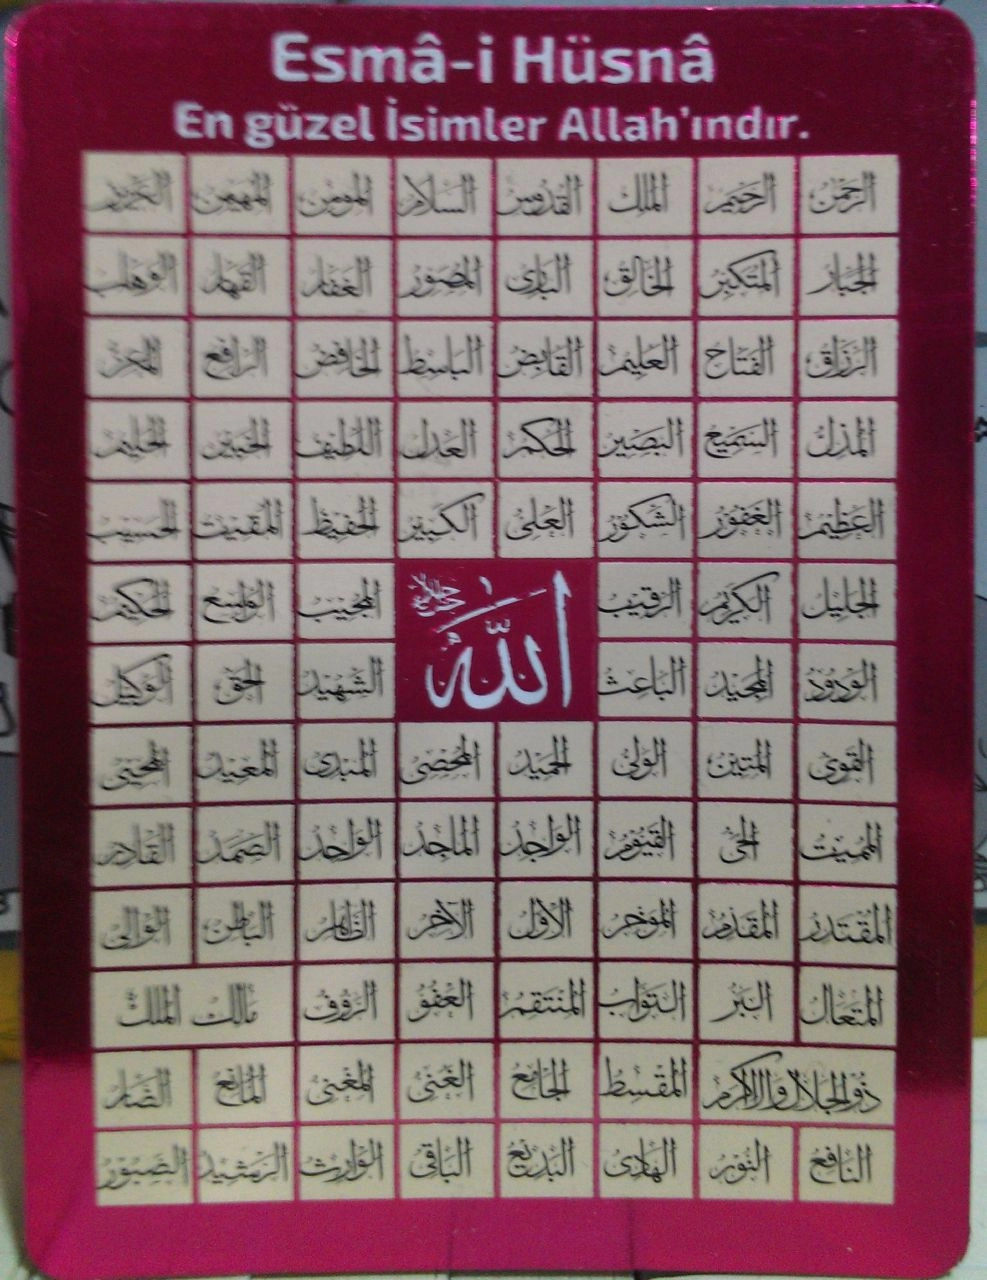 Esmâ-i Hüsnâ
En güzel İsimler Allah'ındır.
الرحمن الرحيم الملك القدوس السلام المؤمن المهيمن العزيز
الجبار المتكبر الخالق البارئ المصور الغفار القهار الوهاب
الرزاق الفتاح العليم القابض الباسط الخافض الرافع المعز
المذل السميع البصير الحكم العدل اللطيف الخبير الحليم
العظيم الغفور الشكور العلي الكبير الحفيظ المقيت الحسيب
الجليل الكريم الرقيب الله جل جلاله المجيب الواسع الحكيم
الودود المجيد الباعث الشهيد الحق الوكيل
القوي المتين الولي الحميد المحصي المبدئ المعيد المحيي
المميت الحي القيوم الواجد الماجد الواحد الصمد القادر
المقتدر المقدم المؤخر الأول الآخر الظاهر الباطن الوالي
المتعال البر التواب المنتقم العفو الرؤوف مالك الملك
ذو الجلال والإكرام المقسط الجامع الغني المغني المانع الضار
النافع النور الهادي البديع الباقي الوارث الرشيد الصبور